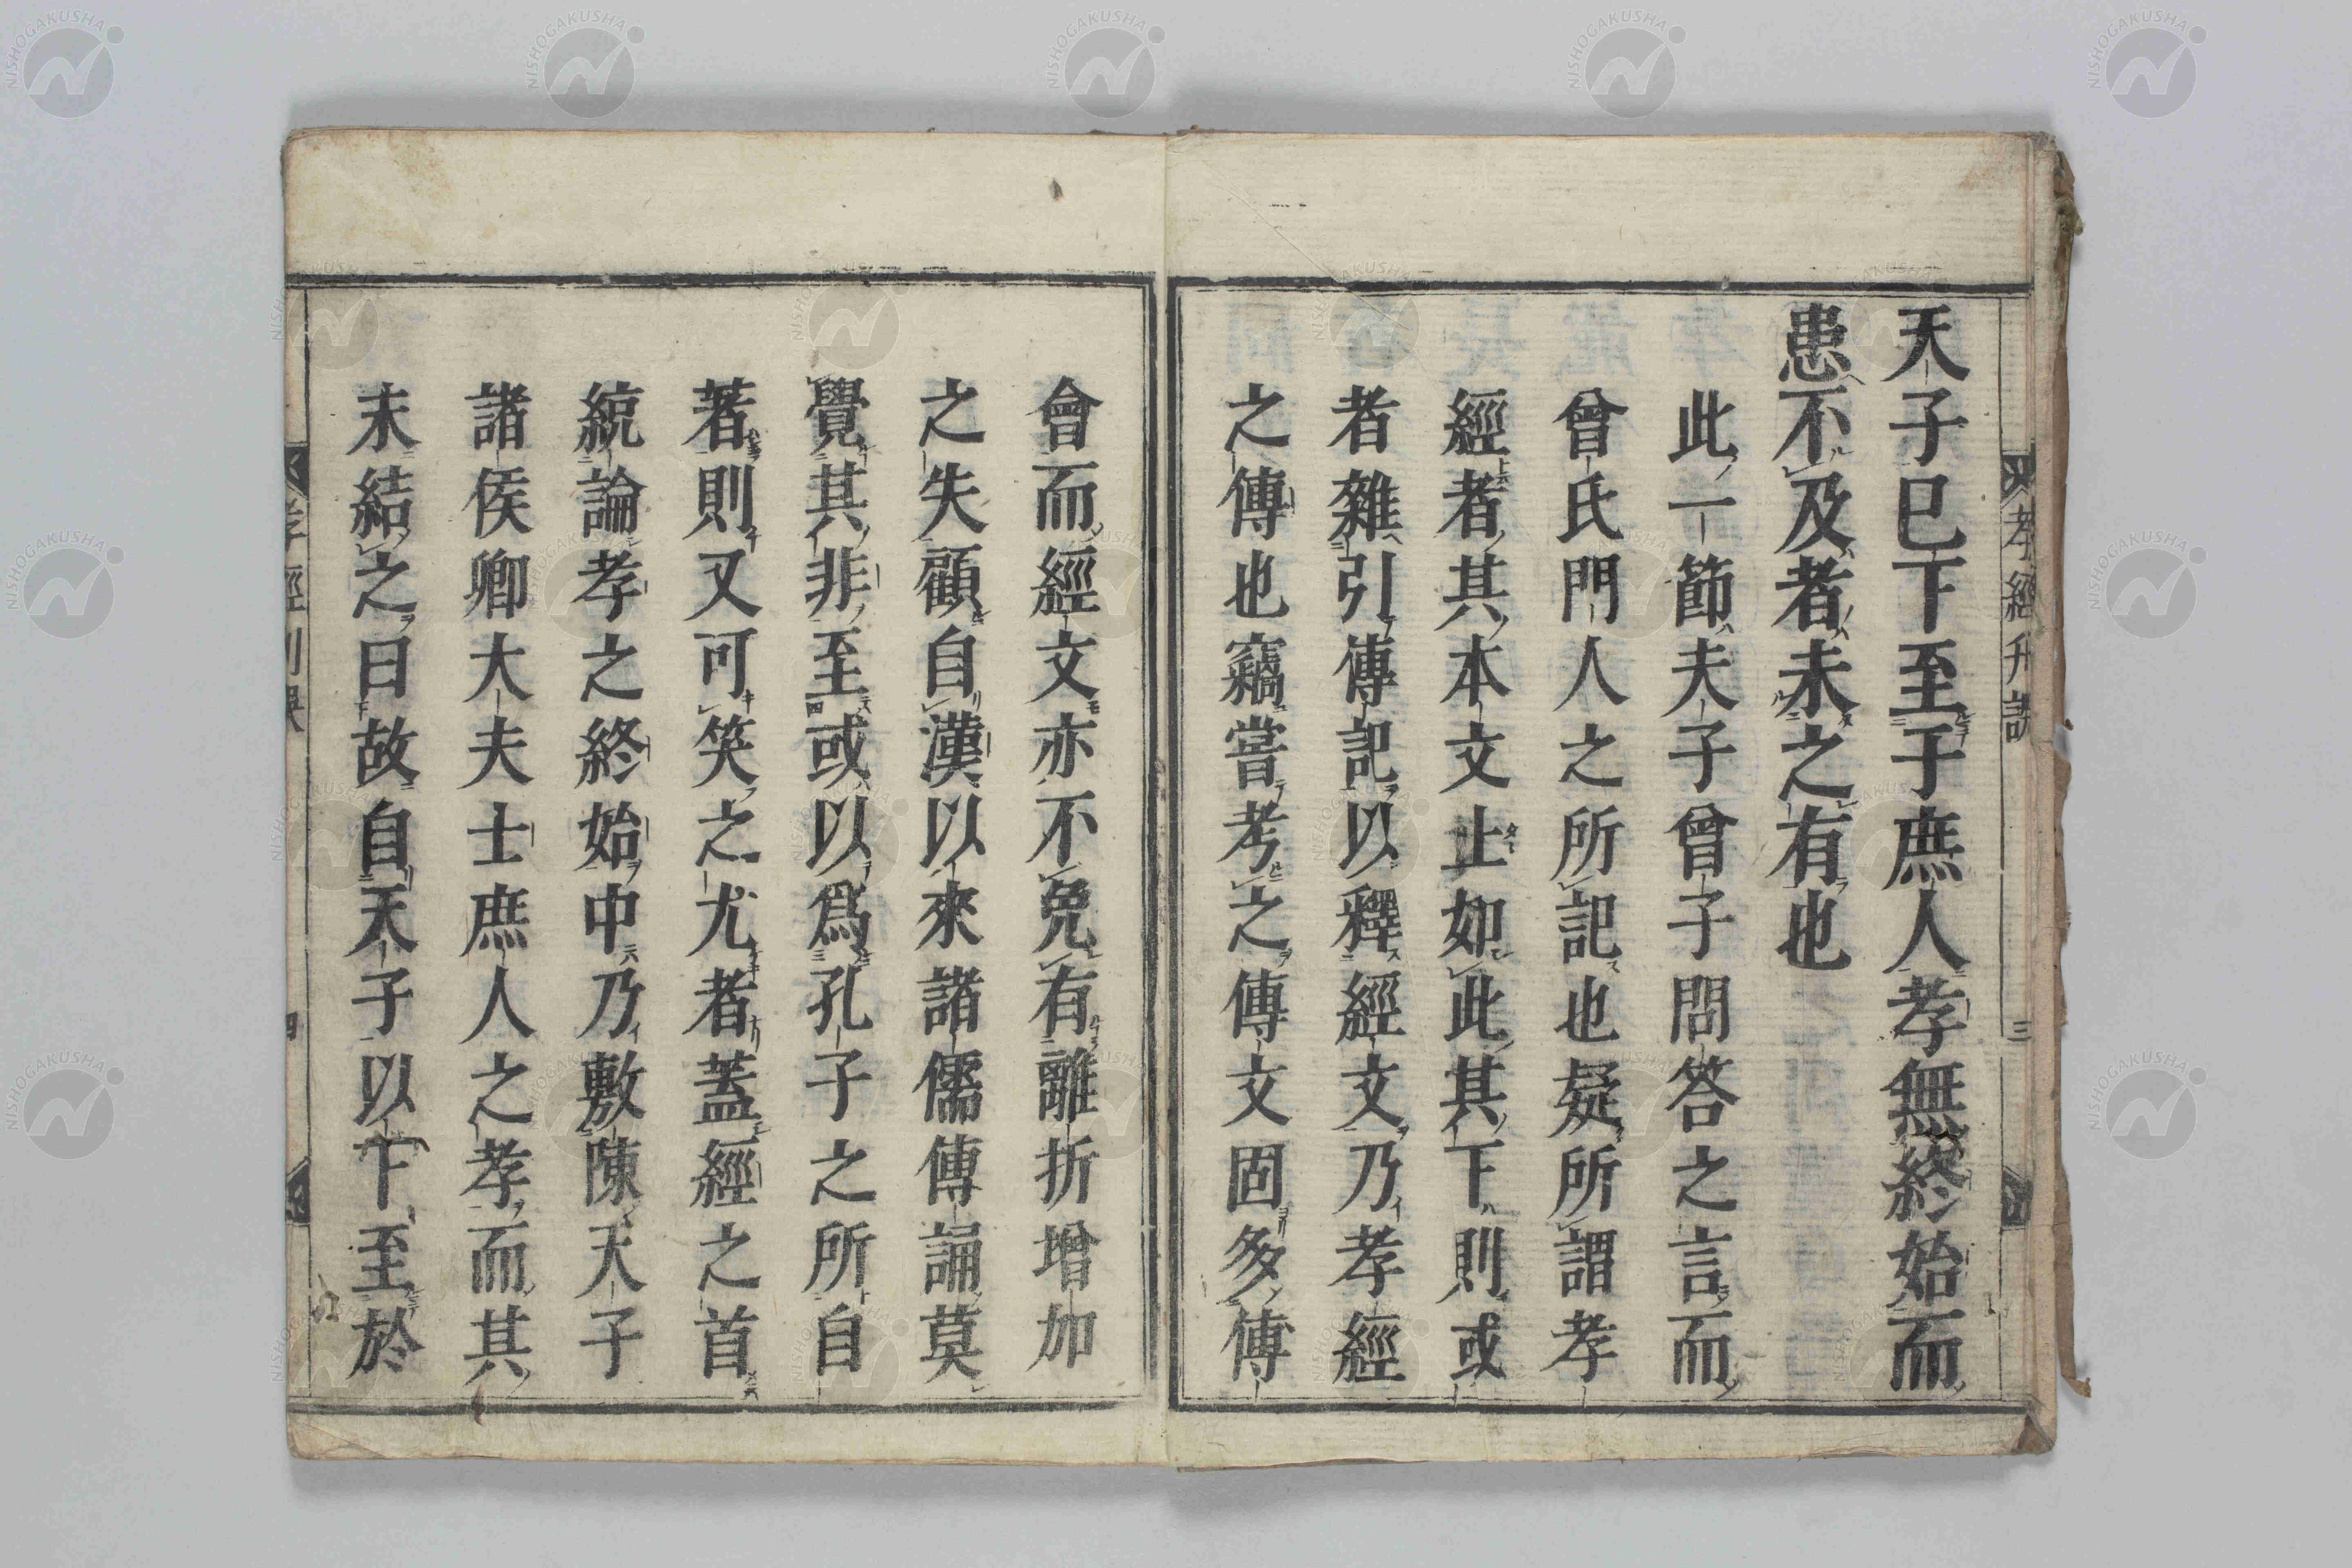 天子已下至于庶人孝無終始而
患不及者未之有也
此一節夫子曾子問答之言而
曾氏門人之所記也疑所謂孝
經者其本文止如此其下則或
者雜引傳記以釋經文乃孝經
之傳也竊嘗考之傳文固多傅
會而經文亦不免有離折增加
之失顧自漢以來諸儒傳誦莫
覺其非至或以爲孔子之所自
著則又可笑之尤者蓋經之首
統論孝之終始中乃敷陳天子
諸侯卿大夫士庶人之孝而其
末結之曰故自天子以下至於
孝經刊誤
三
四
NISHOGAKUSHA